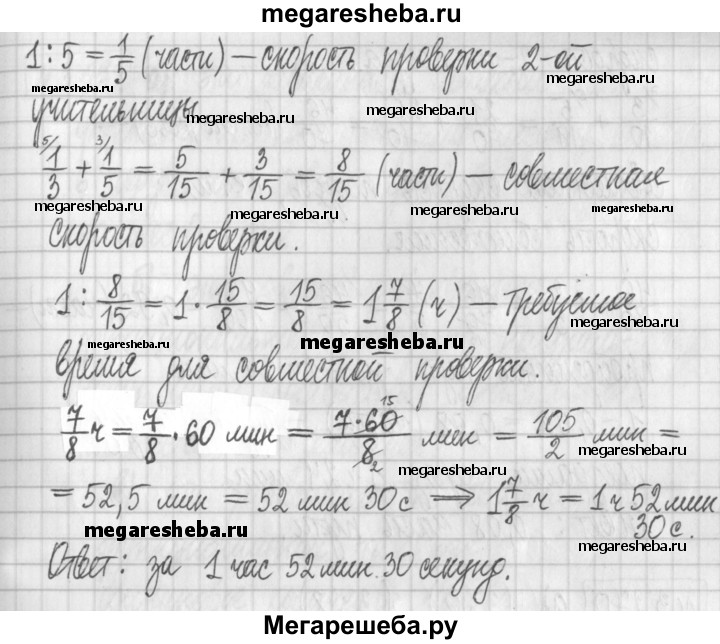 megaresheba.ru
1 : 5 = 1/5 (части) – скорость проверки 2-ой
megaresheba.ru megaresheba.ru
учительницы. megaresheba.ru
5/ 1/3 + 3/ 1/5 = 5/15 + 3/15 = 8/15 (части) – совместная
megaresheba.ru megaresheba.ru megaresheba.ru
скорость проверки.
1 : 8/15 = 1 · 15/8 = 15/8 = 1 7/8 (ч) – требуемое
megaresheba.ru megaresheba.ru megaresheba.ru
время для совместной проверки.
7/8 ч = 7/8 · 60 мин = 7 · 60 15 / 8 2 мин = 105/2 мин =
megaresheba.ru
= 52,5 мин = 52 мин 30 с ⟹ 1 7/8 ч = 1 ч 52 мин
30 с.
megaresheba.ru megaresheba.ru
Ответ: за 1 час 52 мин 30 секунд.
Мегарешеба.ру